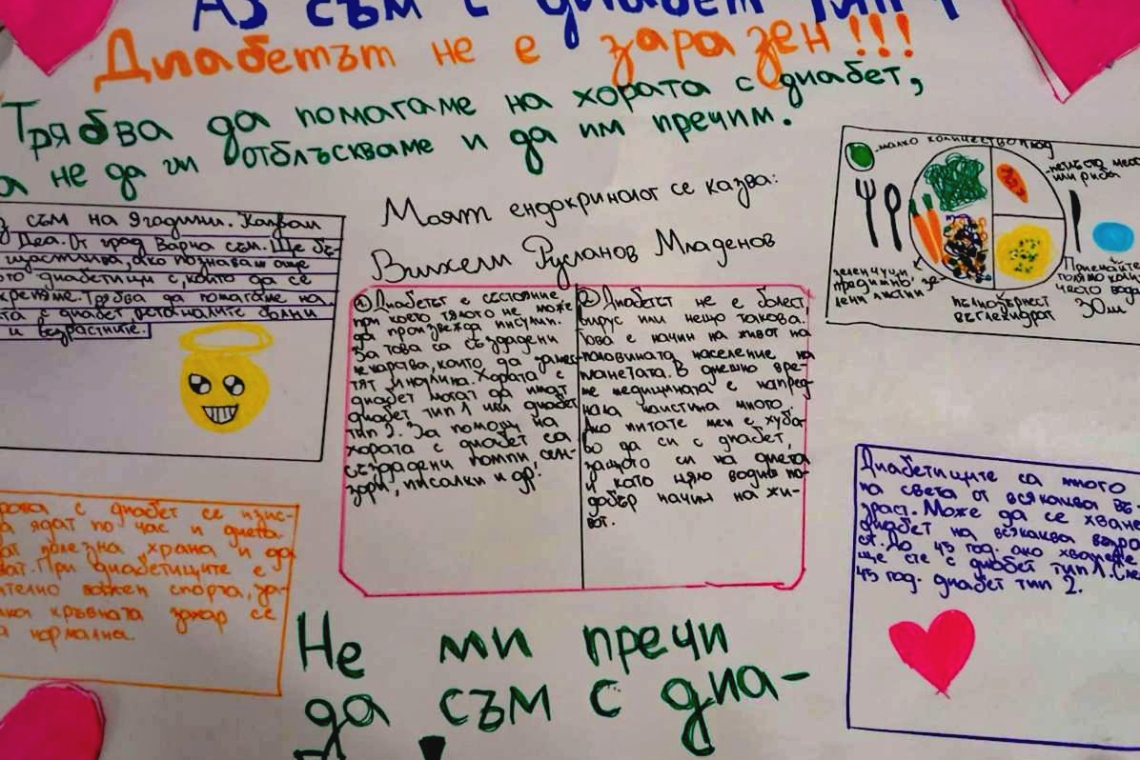 Аз съм с диабет тип 1
Диабетът не е заразен!!!
Трябва да помагаме на хората с диабет,
а не да ги отблъскваме и да им пречим.
съм на 9 години. Казвам
Деа. От град Варна съм. Ще бъ-
щастлива, ако познаваш още
диабетици, с които да се
Трябва да помагаме на
с диабет
и възрастните.
Моят ендокринолог се казва:
Вилхелм Русланов Младенов
малко количество
или риба
зеленчуци
предимно зе-
лени листни
пълнозърнест
въглехидрат
Приемайте
често вода
30м
① Диабетът е състояние,
при което тялото не може
да произвежда инсулин.
За това са създадени
лекарства, които да замес-
тят инсулина. Хората с
диабет могат да имат
диабет тип 1 или диабет
тип 2. За помощ на
хората с диабет са
създадени помпи, сен-
зори, писалки и др.
② Диабетът не е болест
вирус или нещо такова.
Това е начин на живот на
половината население на
планетата. В днешно вре-
ме медицината е напред-
нала наистина много.
Ако питате мен е хуба-
во да си с диабет,
защото си на диета
и като цяло водиш по-
добър начин на жи-
вот.
с диабет се изис-
ядат по час и диета.
полезна храна и да
При диабетиците е
важен спорта, за-
кръвната захар се
нормална.
Диабетиците са много
на света от всякаква въ-
зраст. Може да се хване
диабет на всякаква възра
ст. До 45 год. ако хванете
ще сте с диабет тип 1. След
45 год. диабет тип 2.
Не ми пречи
да съм с диа-